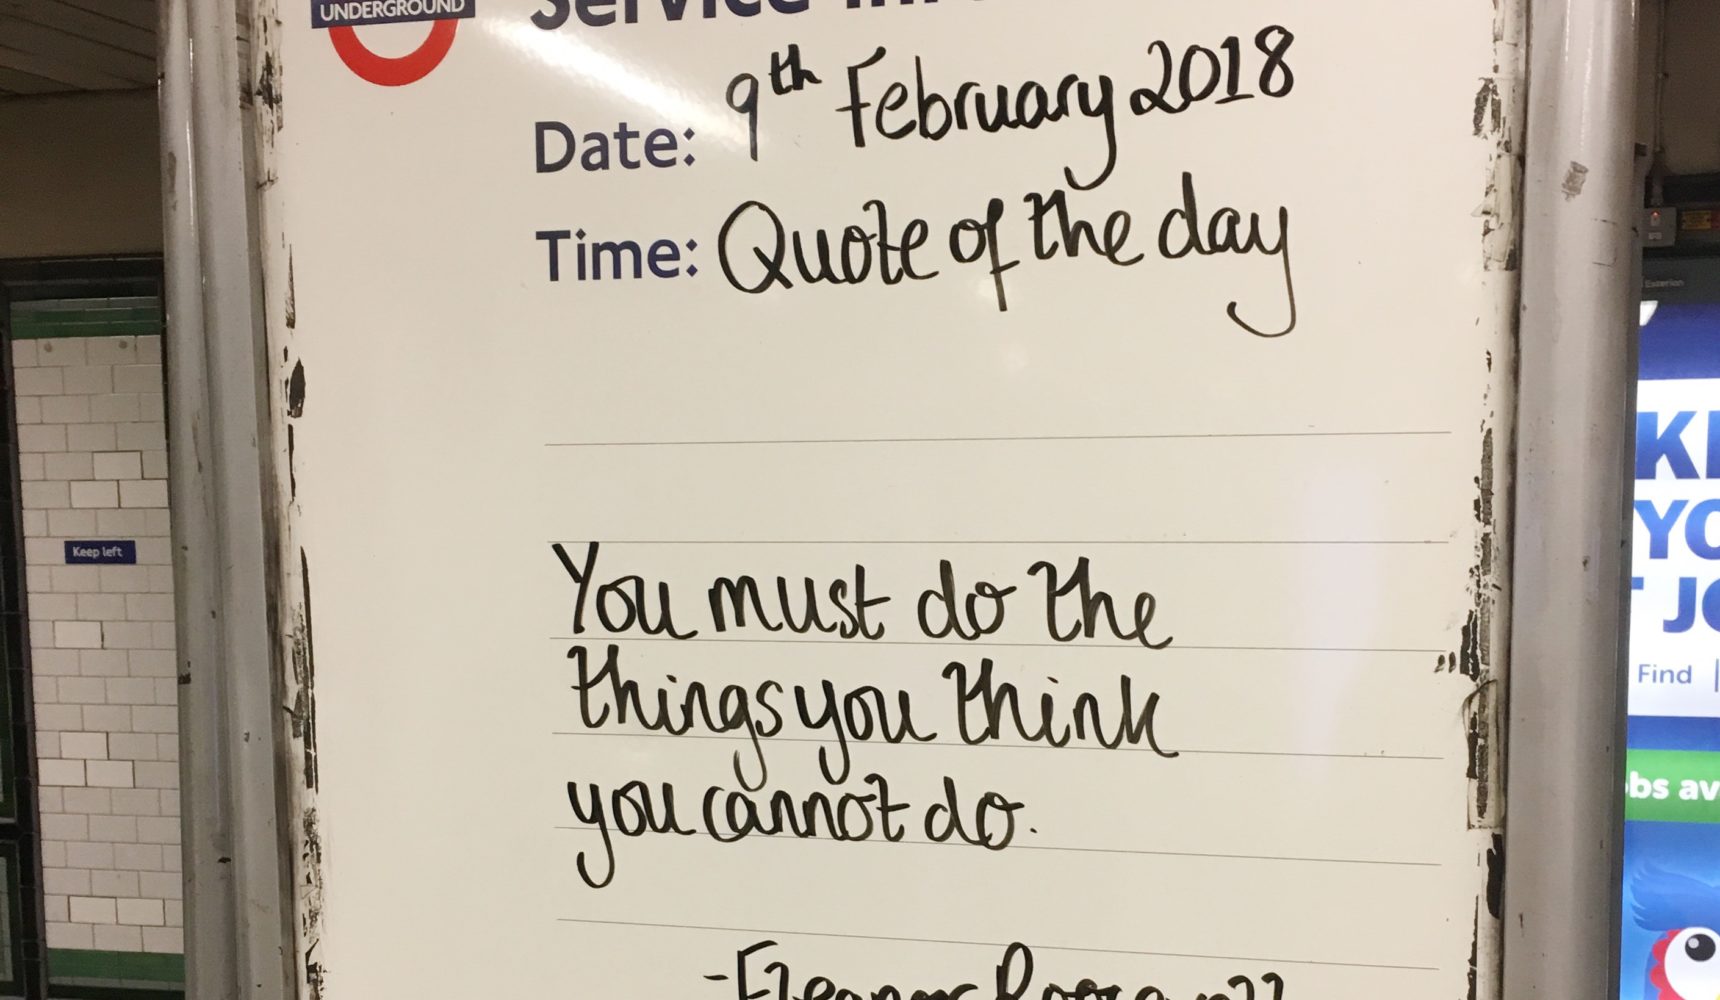 UNDERGROUND
Service
Date: 9th February 2018
Time: Quote of the day
You must do the
things you think
you cannot do.
- Eleanor Roosevelt
Keep left
YO
JO
Find